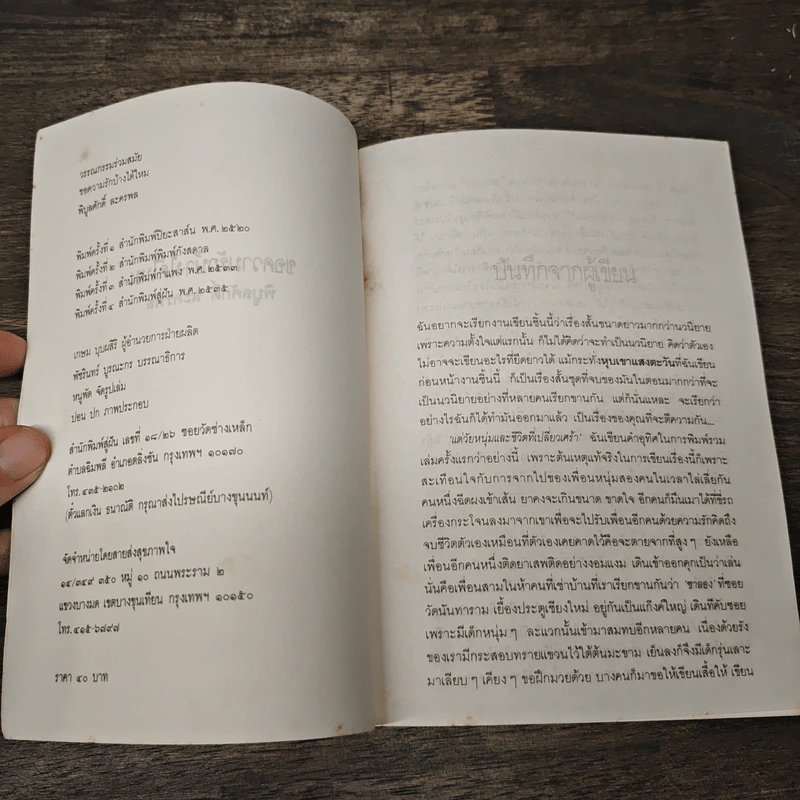 วรรณกรรมร่วมสมัย
ขอความรักบ้างได้ไหม
พิบูลศักดิ์ ละครพล
พิมพ์ครั้งที่ ๑ สำนักพิมพ์ปิยะสาส์น พ.ศ. ๒๕๒๐
พิมพ์ครั้งที่ ๒ สำนักพิมพ์พิมพ์กังสดาล
พิมพ์ครั้งที่ ๓ สำนักพิมพ์กำแพง พ.ศ. ๒๕๓๓
พิมพ์ครั้งที่ ๔ สำนักพิมพ์สู่ฝัน พ.ศ. ๒๕๓๕
เกษม บุบผสิริ ผู้อำนวยการฝ่ายผลิต
พัชรินทร์ บูรณะกร บรรณาธิการ
หนูพัด จัดรูปเล่ม
ปอน ปก ภาพประกอบ
สำนักพิมพ์สู่ฝัน เลขที่ ๑๘/๒๖ ซอยวัดช่างเหล็ก
ตำบลฉิมพลี อำเภอตลิ่งชัน กรุงเทพฯ ๑๐๑๗๐
โทร. ๔๓๕-๒๑๐๒
(ตั๋วแลกเงิน ธนาณัติ กรุณาส่งไปรษณีย์บางขุนนนท์)
จัดจำหน่ายโดยสายส่งสุขภาพใจ
๑๔/๓๔๙ ๓๕๐ หมู่ ๑๐ ถนนพระราม ๒
แขวงบางมด เขตบางขุนเทียน กรุงเทพฯ ๑๐๑๕๐
โทร. ๔๑๕-๖๘๙๘
ราคา ๔๐ บาท
บันทึกจากผู้เขียน
ฉันอยากจะเรียกงานเขียนชิ้นนี้ว่าเรื่องสั้นขนาดยาวมากกว่านวนิยาย
เพราะความตั้งใจแต่แรกนั้น ก็ไม่ได้คิดว่าจะทำเป็นนวนิยาย คิดว่าตัวเอง
ไม่อาจจะเขียนอะไรที่ยืดยาวได้ แม้กระทั่งหุบเขาแสงตะวันที่ฉันเขียน
ก่อนหน้างานชิ้นนี้ ก็เป็นเรื่องสั้นชุดที่จบของมันในตอนมากกว่าที่จะ
เป็นนวนิยายอย่างที่หลายคนเรียกขานกัน แต่ก็นั่นแหละ จะเรียกว่า
อย่างไรฉันก็ได้ทำมันออกมาแล้ว เป็นเรื่องของคุณที่จะตีความกัน...
'แด่วัยหนุ่มและชีวิตที่เปลี่ยวเศร้า' ฉันเขียนคำอุทิศในการพิมพ์รวม
เล่มครั้งแรกว่าอย่างนี้ เพราะต้นเหตุแท้จริงในการเขียนเรื่องนี้ก็เพราะ
สะเทือนใจกับการจากไปของเพื่อนหนุ่มสองคนในเวลาไล่เลี่ยกัน
คนหนึ่งฉีดผงเข้าเส้น ยาคงจะเกินขนาด ขาดใจ อีกคนก็มึนเมาได้ที่ขี่รถ
เครื่องกระโจนลงมาจากเขาเพื่อจะไปรับเพื่อนอีกคนด้วยความรักคิดถึง
จบชีวิตตัวเองเหมือนที่ตัวเองเคยคาดไว้คือจะตายจากที่สูง ๆ ยังเหลือ
เพื่อนอีกคนหนึ่งติดยาเสพติดอย่างงอมแงม เดินเข้าออกคุกเป็นว่าเล่น
นั่นคือเพื่อนสามในห้าคนที่เช่าบ้านที่เราเรียกขานกันว่า 'ซาลอง' ที่ซอย
วัดนันทาราม เยื้องประตูเชียงใหม่ อยู่กันเป็นแก๊งค์ใหญ่ เดินทีคับซอย
เพราะมีเด็กหนุ่ม ๆ ละแวกนั้นเข้ามาสมทบอีกหลายคน เนื่องด้วยรัง
ของเรามีกระสอบทรายแขวนไว้ใต้ต้นมะขาม เย็นลงก็จึงมีเด็กรุ่นเลาะ
มาเลียบ ๆ เคียง ๆ ขอฝึกมวยด้วย บางคนก็มาขอให้เขียนเสื้อให้ เขียน